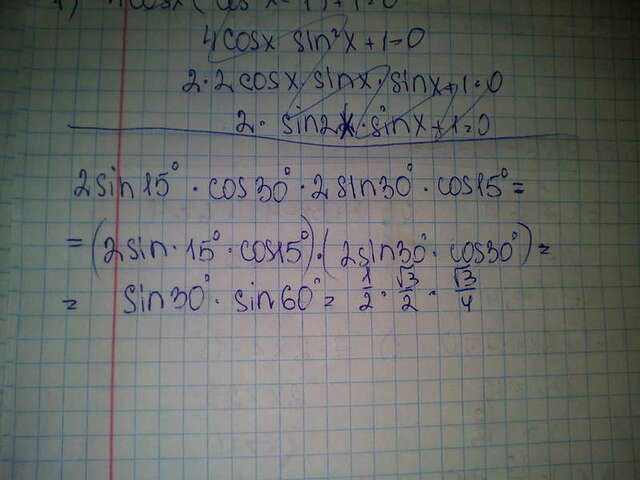 4cosx sin²x+1=0
2·2cosx·sinx·sinx+1=0
2·sin2x·sinx+1=0
2sin15°·cos30°·2sin30°·cos15°=
=(2sin·15°·cos15°)·(2sin30°·cos30°)=
= sin30°·sin60°= 1/2·√3/2· √3/4